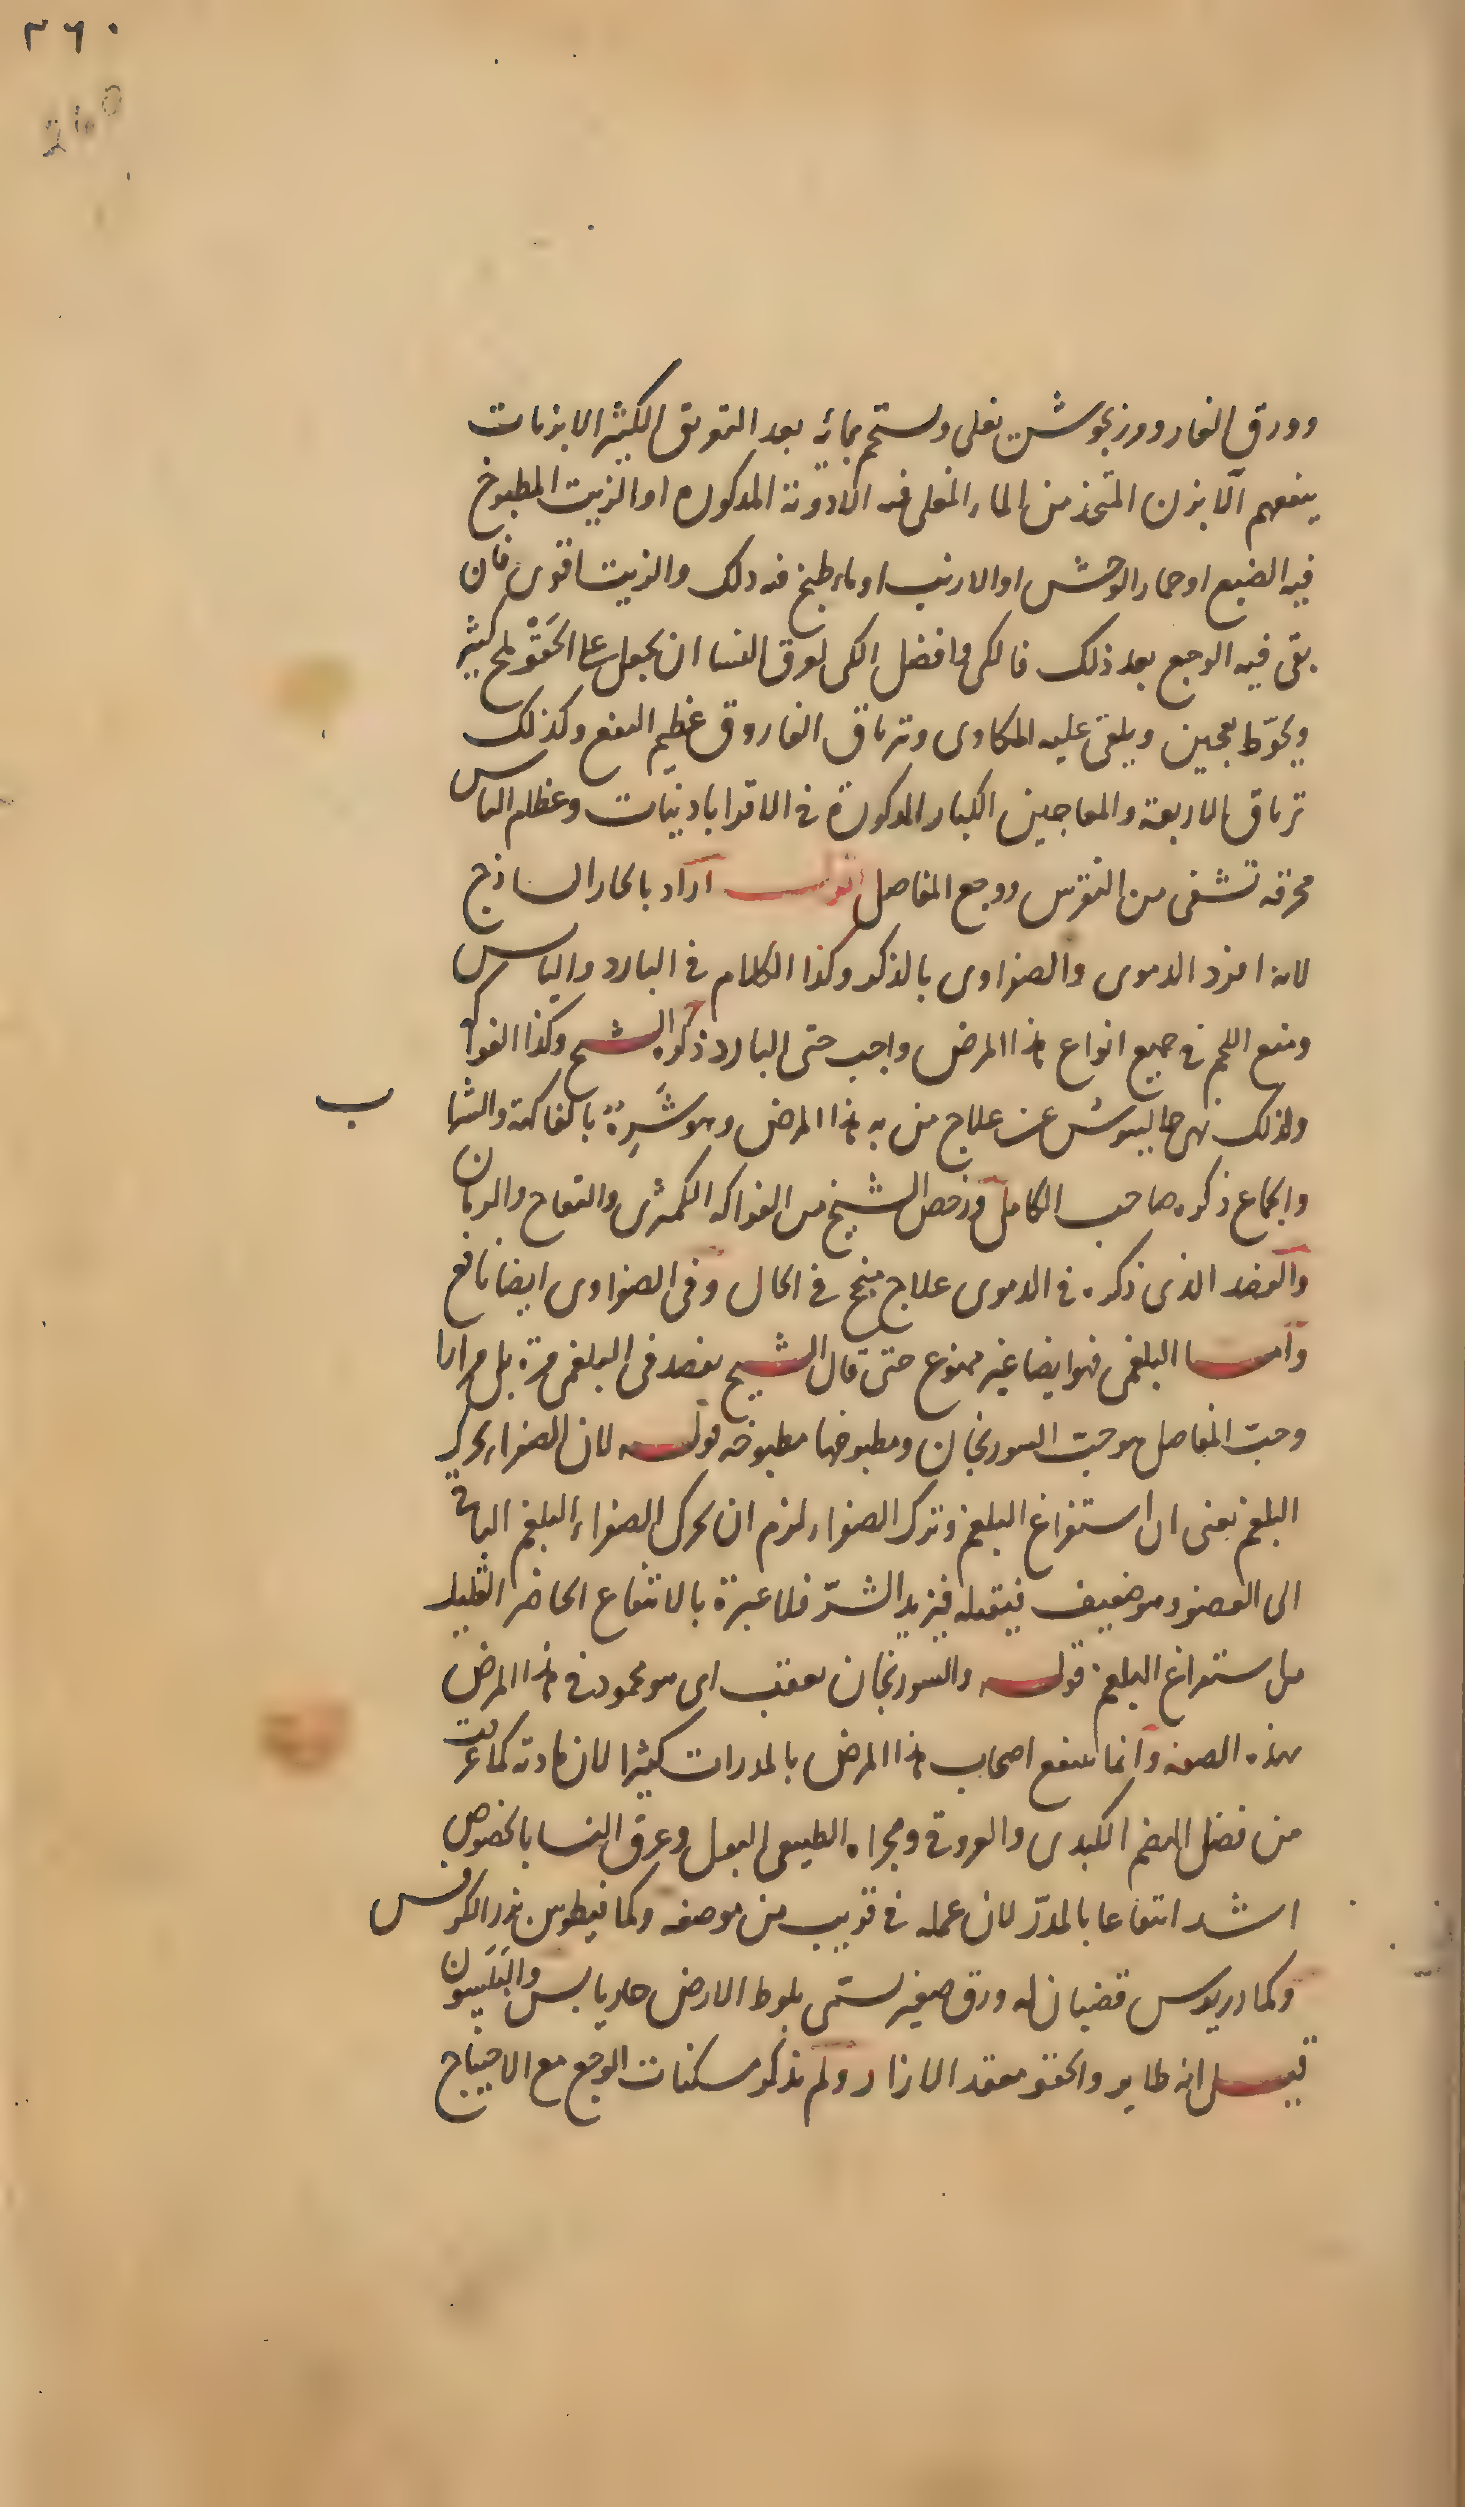 ٣٦٠
وورق الغار وورزنجوش تغلى ويستحم بمائه بعد التعرق الكثير الابزنات
ينفعهم الابزن المتخذ من الماء المغلى فيه الادوية المذكورة او الزيت المطبوخ
فيه الضبع او حمار الوحش او الارنب او ماء طبخ فيه ذلك والزيت اقوى فان
بقى فيه الوجع بعد ذلك فالكى وافضل الكى لعرق النسا ان يجعل على الحَقْو ملح كثير
ويحوّط بعجين ويلقى عليه المكاوى وترياق الفاروق عظيم النفع وكذلك
ترياق الاربعة والمعاجين الكبار المذكورة فى الاقراباذينات وعظام الناس
محرقة تشفى من النقرس ووجع المفاصل قوله اراد بالحار الساذج
لانه افرد الدموى والصفراوى بالذكر وكذا الكلام فى البارد واليابس
ومنع اللحم فى جميع انواع هذا المرض واجب حتى البارد ذكره الشيخ وكذا الفواكه
ولذلك نهى جالينوس عن علاج من به هذا المرض وهو شَرِهٌ بالفاكهة والشراب
والجماع ذكره صاحب الكامل ورخص الشيخ من الفواكه الكمثرى والتفاح والرمان
والفصد الذى ذكره فى الدموى علاج منجح فى الحال وفى الصفراوى ايضا نافع
واما البلغمى فهو ايضا غير ممنوع حتى قال الشيخ يفصد فى البلغمى مرة بل مرارا
وحبّ المفاصل هو حبّ السورنجان ومطبوخها مطبوخه قوله لان الصفراء يحرك
البلغم يعنى ان استفراغ البلغم وترك الصفراء لزم ان يحرك الصفراء البلغم الباقى
الى العضو وهو ضعيف فيقبله فيزيد الشرّ فلا عبرة بالانتفاع الحاضر القليل
من استفراغ البلغم قوله والسورنجان يعقب اى هو محمود فى هذا المرض
بهذه الصفة وانما ينتفع اصحاب هذا المرض بالمدرات كثيرا لان مادته كما عرفت
من فضل الهضم الكبدى والعروقى ومجراه الطبيعى البول وعرق النسا بالخصوص
اشد انتفاعا بالمدرّ لان عمله فى قريب من موضعه وكمافيطوس بزر الكرفس
وكمادريوس قضبان له ورق صغير يسمى بلوط الارض حار يابس والبَلَيسون
قيل انه طاير والحقو معقد الازار ولم يذكر مسكنات الوجع مع الاحتياج